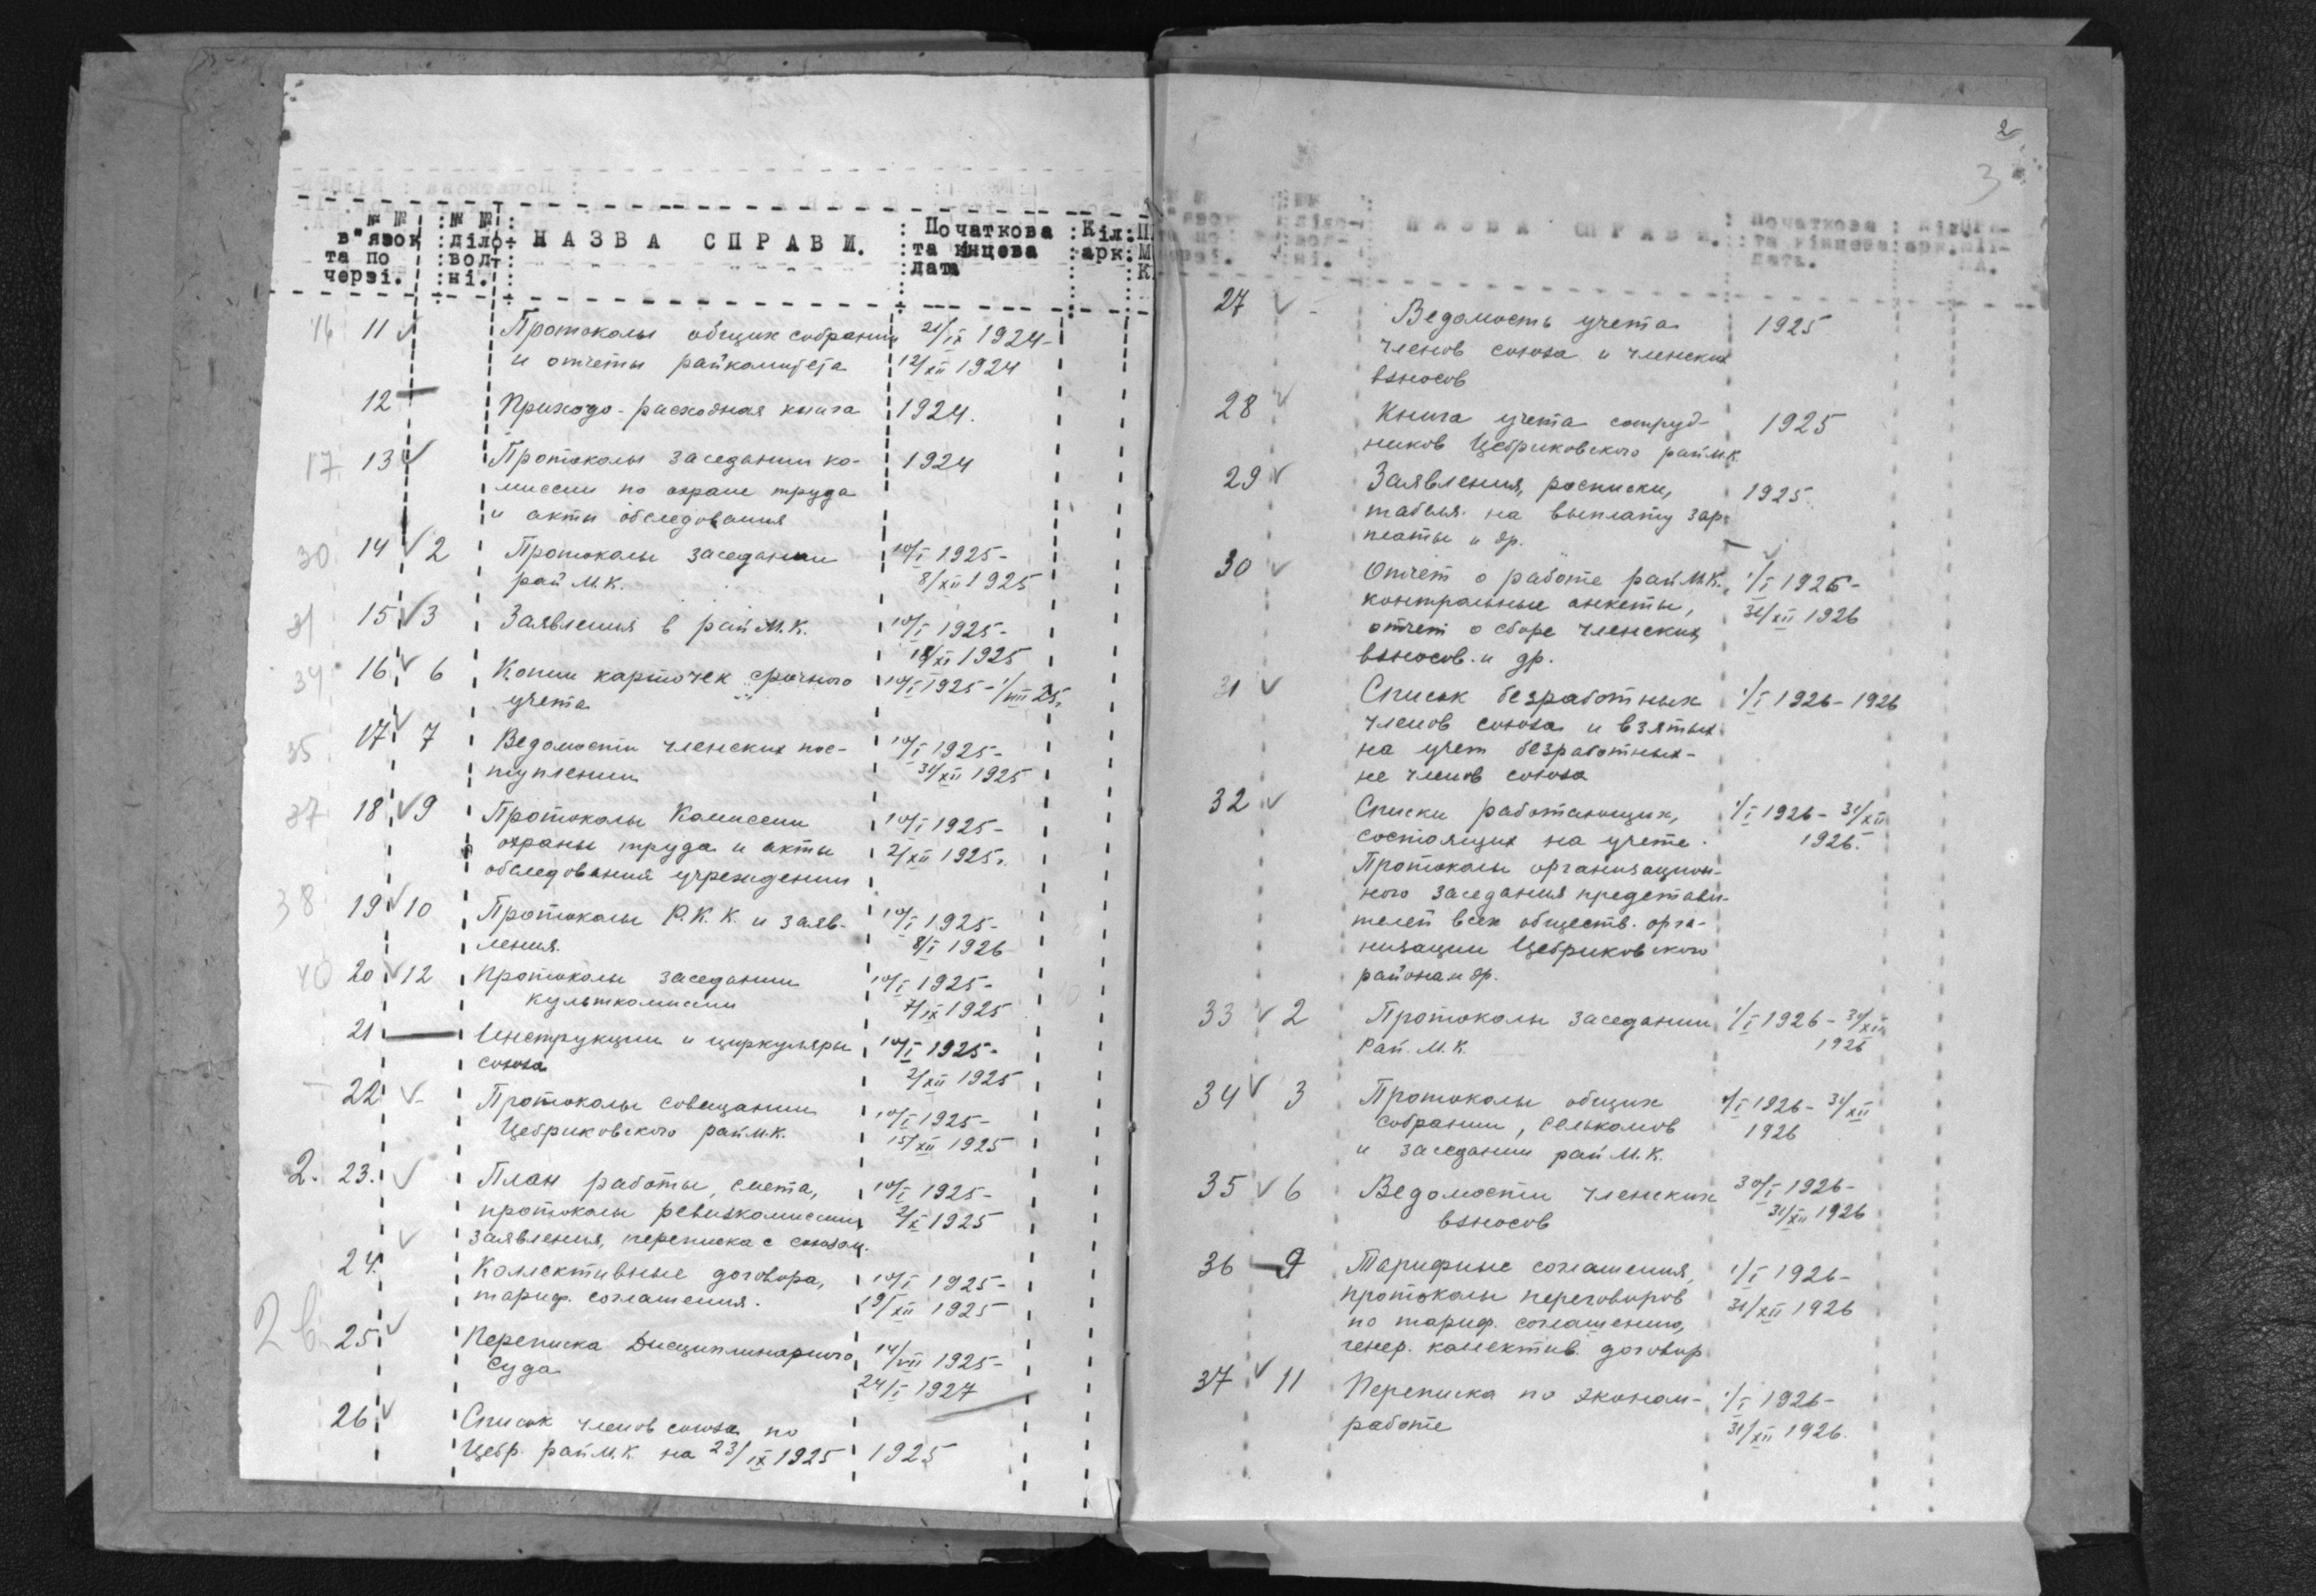 № № в"язок та по черзі. : № № діло- вол- ні. : НАЗВА СПРАВИ. : Початкова та кінцева дата : Кіл. арк.
16 11 Протоколы общих собраний 21/IX 1924-
и отчеты райкомитета 12/XII 1924
12 Приходо-расходная книга 1924.
17 13 Протоколы заседании ко- 1924
миссии по охране труда
и акты обследования
30 14 2 Протоколы заседании 10/I 1925-
рай М.К. 8/XII 1925
31 15 3 Заявления в рай М.К. 10/I 1925-
18/XI 1925
34 16 6 Копии карточек срочного 10/I 1925-1/VIII 25.
учета
35 17 7 Ведомости членских пос- 10/I 1925-
туплении 31/XII 1925
37 18 9 Протоколы Комиссии 10/I 1925-
охраны труда и акты 2/XII 1925г.
обследования учреждении
38 19 10 Протоколы Р.К.К. и заяв- 10/I 1925-
ления. 8/I 1926
40 20 12 Протоколы заседании 10/I 1925-
культкомиссии 7/IX 1925
21 Инструкции и циркуляры 10/I 1925-
союза 2/XII 1925
22 Протоколы совещании 10/I 1925-
Цебриковского рай М.К. 15/XII 1925
2. 23. План работы, смета, 10/I 1925-
протоколы ревизкомиссии, 2/X 1925
заявления, переписка с союзом.
24. Коллективные договора, 10/I 1925-
тариф. соглашения. 19/XII 1925
25 Переписка Дисциплинарного 14/VII 1925-
Суда 24/I 1927
26 Список членов союза по
Цебр. рай М.К. на 23/IX 1925 1925
2
3
НАЗВА СПРАВИ. Початкова та кінцева дата.
27 Ведомость учета 1925
членов союза и членских
взносов
28 Книга учета сотруд- 1925
ников Цебриковского рай М.К.
29 Заявления, расписки, 1925
табеля на выплату зар-
платы и др.
30 Отчет о работе рай М.К., 1/I 1926-
контрольные анкеты, 31/XII 1926
отчет о сборе членских
взносов и др.
31 Список безработных 1/I 1926-1926
членов союза и взятых
на учет безработных-
не членов союза
32 Списки работающих, 1/I 1926-31/XII
состоящих на учете. 1926.
Протоколы организацион-
ного заседания представи-
телей всех обществ. орга-
низации Цебриковского
района и др.
33 2 Протоколы заседании 1/I 1926-31/XII
Рай. М.К. 1926
34 3 Протоколы общих 1/I 1926-31/XII
собрании, селькомов 1926
и заседании рай М.К.
35 6 Ведомости членских 30/I 1926-
взносов 31/XII 1926
36 9 Тарифные соглашения, 1/I 1926-
протоколы переговоров 31/XII 1926
по тариф. соглашению,
генер. колектив. договор
37 11 Переписка по эконом- 1/I 1926-
работе 31/XII 1926.